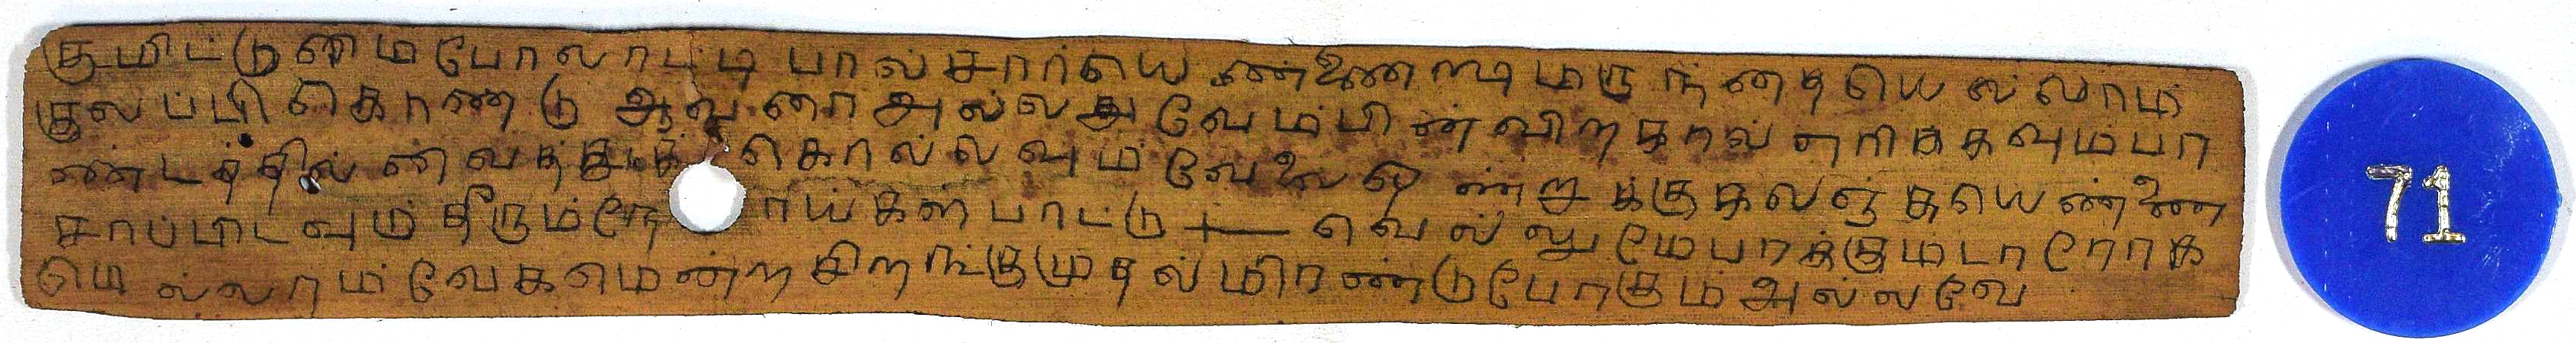 கூமிட்டுணம போலாட்டி பால் சார்யெ ண்ணை ௸ மருந்னதயெல்லாம்
கூலப்பி கொண்டு ஆவணா அல்லது வேம்பின் விறகால் எரிக்கவும் பா
ண்டத்தில் வைத்துக் கொல்லவும் வேலை ஒன்றுக்கு கலஞ்சுயெண்ணை
சாப்பிடவும் தீரும் நோய்கள் பாட்டு வெல்லுமே பாக்கும்டா ரோக
மெல்லாம் வேகமென்ற சிறங்குமுதல் மிரண்டு போகும் அல்லவே
71